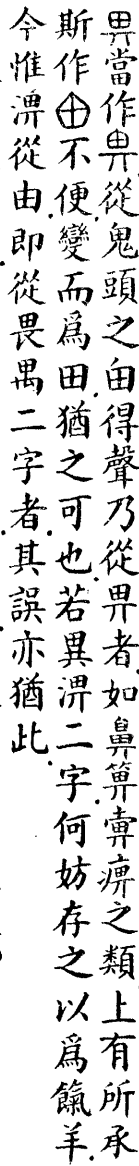 畀當作畁從鬼頭之甶得聲乃從畀者如鼻箅𢍁痹之類上有所承
斯作⊕不便變而爲田猶之可也若異淠二字何妨存之以爲餼羊
今惟淠從由即從畏禺二字者其誤亦猶此